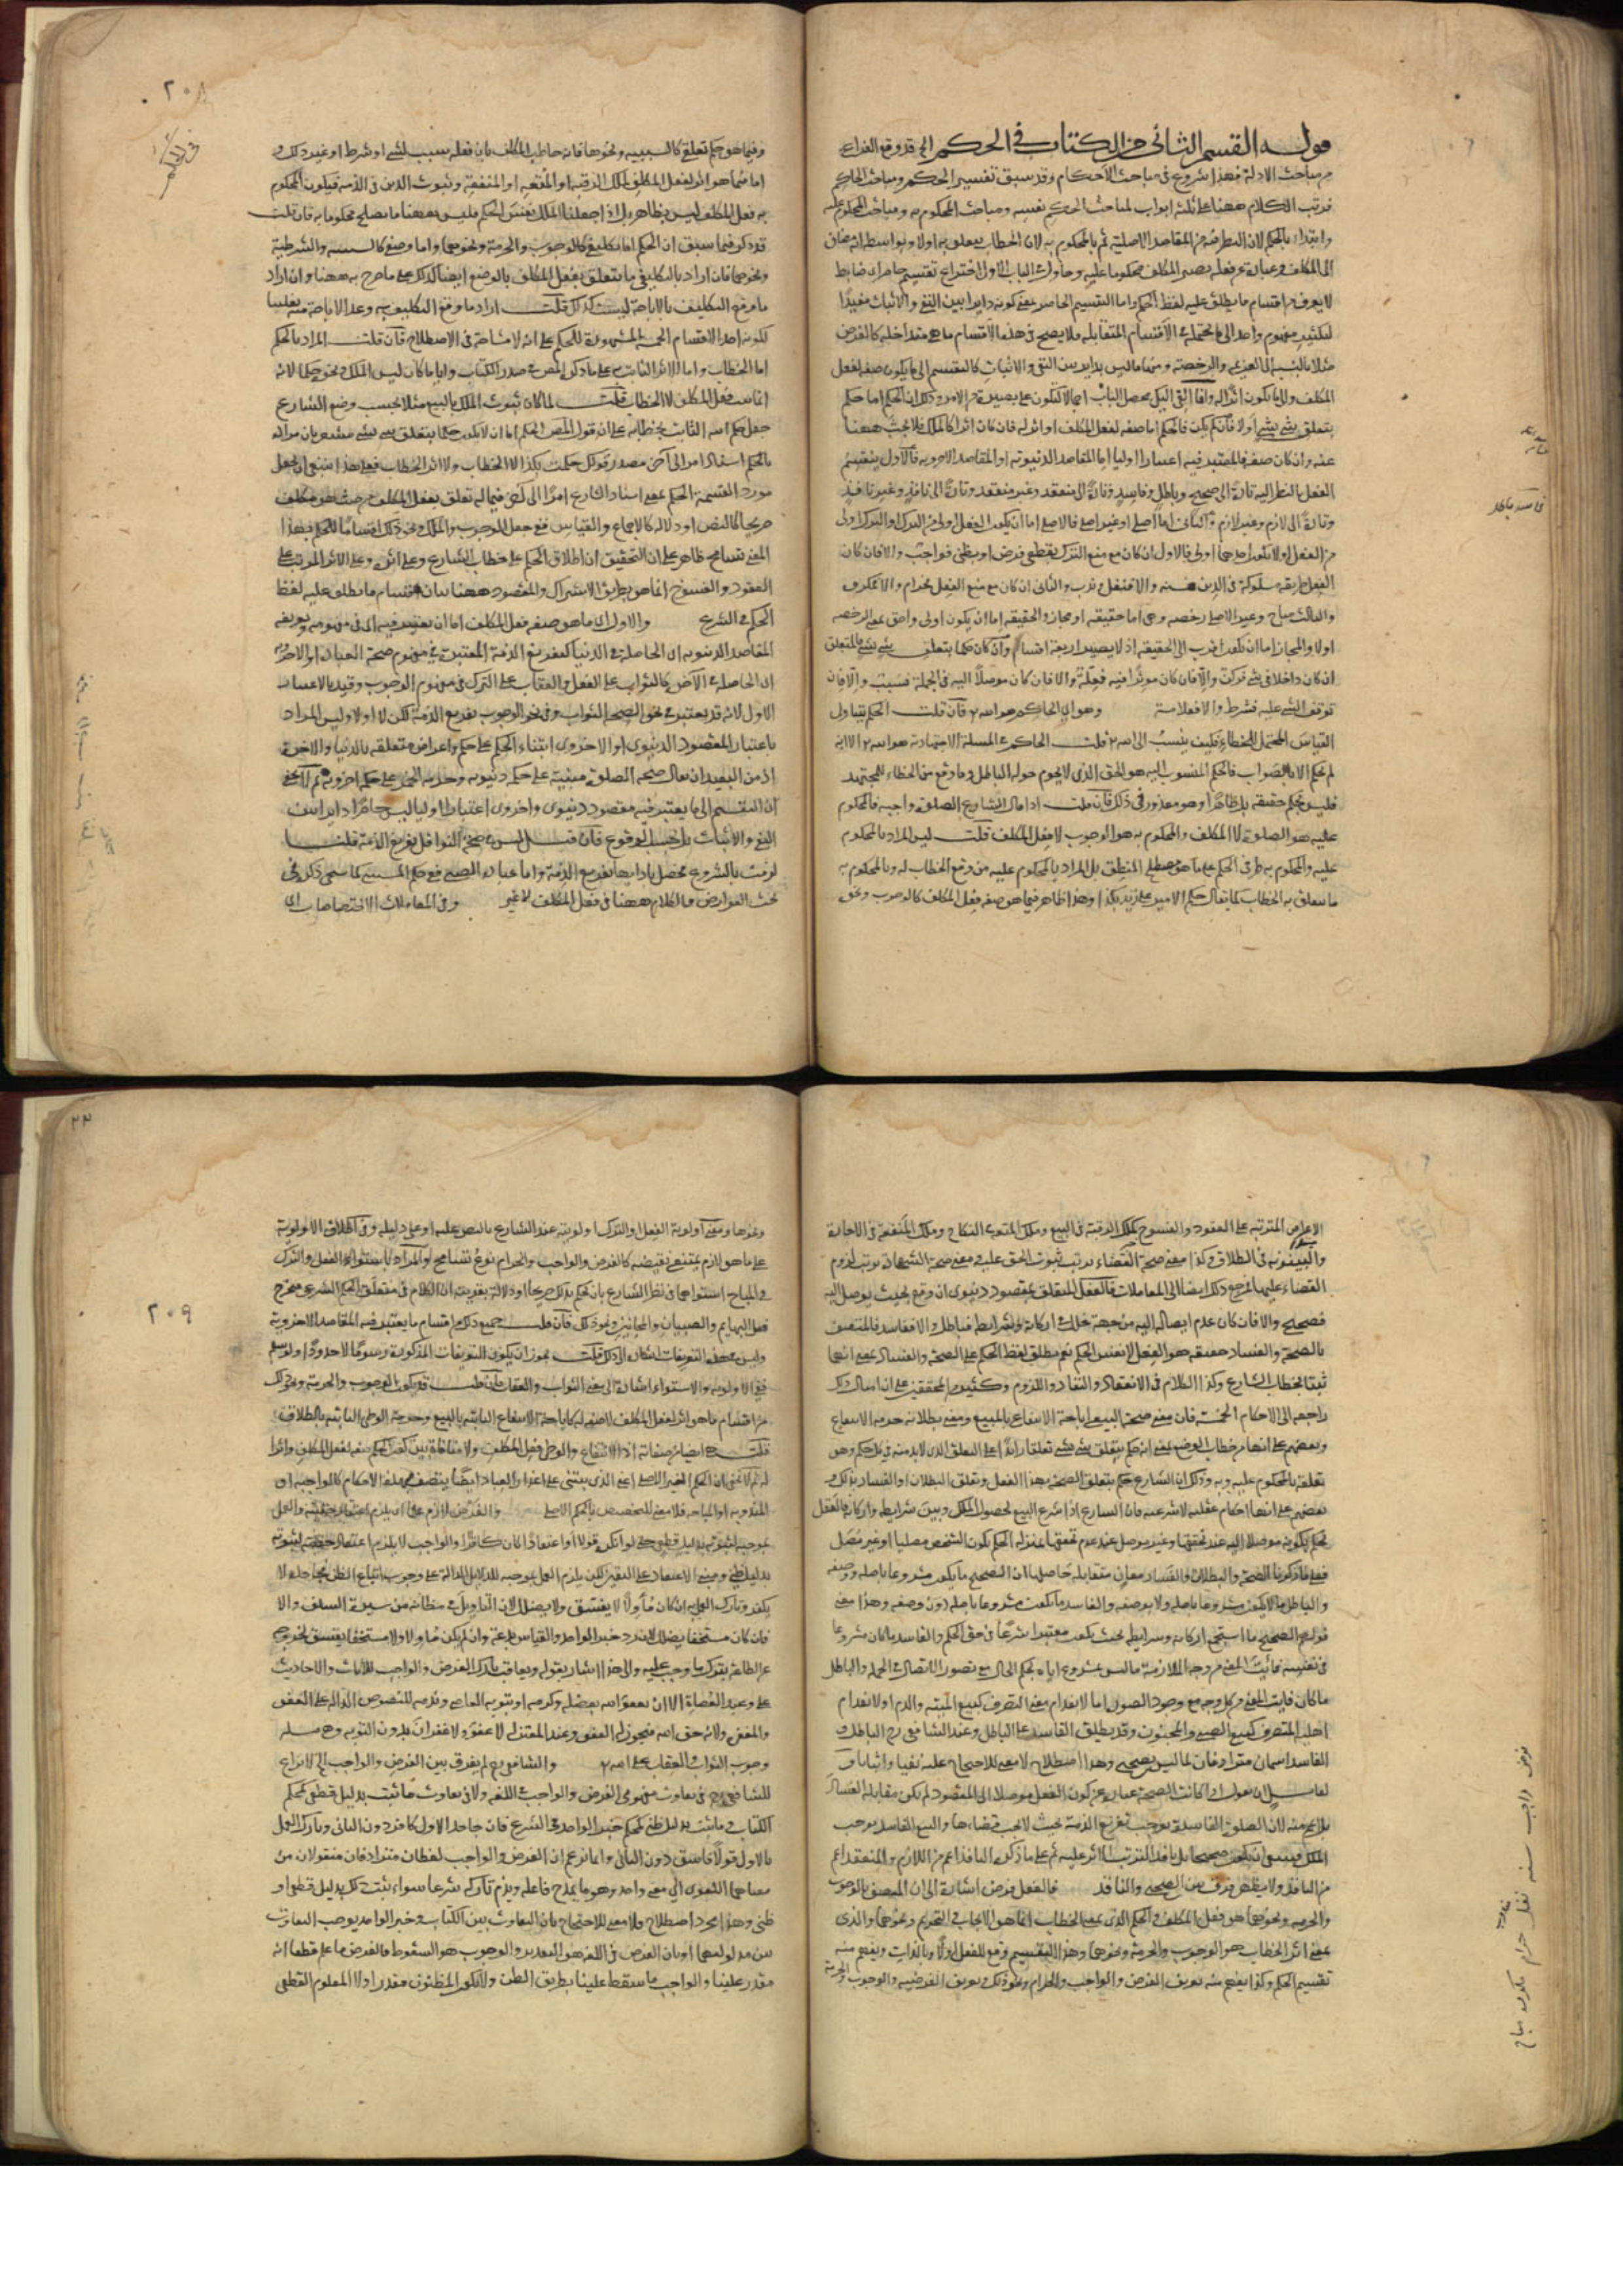 قوله القسم الثاني من الكتاب في الحكم الخ قد وقع الفراغ
من مباحث الادلة فهذا شروع في مباحث الاحكام وقد سبق تفسير الحكم ومباحث الحاكم
فرتب الكلام ههنا على ثلثة ابواب لمباحث الحكم نفسه ومباحث المحكوم به ومباحث المحكوم عليه
وابتداء بالحكم لان النظر فيه من المقاصد الاصلية ثم بالمحكوم به لان الخطاب يتعلق به اولا وبواسطة انه مضاف
الى المكلف وعبارة عن فعله يصير المكلف محكوما عليه وحاول في الباب الاول اختراع تقسيم حاصر اى ضابط
لا يعرف من اقسام ما يطلق عليه لفظ الحكم واما التقسيم الحاصر بمعنى كونه دايرا بين النفي والاثبات مفيدا
لتكثير مفهوم واحد الى الاقسام المتقابلة فلا يصح في هذه الاقسام ما هي متداخلة كالفرض
مثلا بالنسبة الى العزيمة والرخصة ومنها ما ليس بداير بين النفي والاثبات كالتقسيم الى ما يكون صفة لفعل
المكلف والى ما يكون اثرا له
يتعلق شئ بشئ اولا فان لم يكن فالحكم اما صفة لفعل المكلف او اثر له فان كان اثرا كالملك فلا بحث ههنا
عنه وان كان صفة فالمعتبر فيه اعتبارا اوليا اما المقاصد الدنيوية او المقاصد الاخروية فالاول ينقسم
الفعل بالنظر اليه تارة الى صحيح وباطل وفاسد وتارة الى منعقد وغير منعقد وتارة الى نافذ وغير نافذ
وتارة الى لازم وغير لازم والثاني اما اصلي او غير اصلي فالاصلي اما ان يكون الفعل اولى من الترك او الترك اولى
من الفعل او لا يكون احدهما اولى فالاول ان كان مع منع الترك بقطعي ففرض او بظني فواجب والا فان كان
الفعل طريقة مسلوكة في الدين فسنة والا فنفل وندب والثاني ان كان مع منع الفعل فحرام والا فمكروه
والثالث مباح وغير الاصلي رخصة وهي اما حقيقة او مجاز والحقيقة اما ان يكون اولى واحق بمعنى الرخصة
اولا والمجاز اما ان يكون اقرب الى الحقيقة اذ لا يصير اربعة اقسام وان كان حكما يتعلق شئ بشئ فالمتعلق
ان كان داخلا في شئ فركن والا فان كان مؤثرا فيه فعلة والا فان كان موصلا اليه في الجملة فسبب والا فان
توقف الشئ عليه فشرط والا فعلامة وهو اي الحاكم هو الله تع فان قلت الحكم يتناول
القياس المحتمل للخطاء فكيف ينسب الى الله تع قلت الحاكم في المسئلة الاجتهادية هو الله تع الا انه
لم يحكم الا بالصواب فالحكم المنسوب اليه هو الحق الذي لا يحوم حوله الباطل وما وقع من الخطاء للمجتهد
فليس بحكم حقيقة بل ظاهرا وهو معذور في ذلك فان قلت اذا قال الشارع الصلوة واجبة فالمحكوم
عليه هو الصلوة لا المكلف والمحكوم به هو الوجوب لا فعل المكلف قلت ليس المراد بالمحكوم
عليه والمحكوم به طرفي الحكم على ما هو مصطلح المنطق بل المراد بالمحكوم عليه من وقع الخطاب له وبالمحكوم به
ما يتعلق به الخطاب كما يقال حكم الامير على زيد بكذا وهذا ظاهر فيما هو صفة فعل المكلف كالوجوب ونحوه
٢٠٨
وفيما هو حكم تعلقي كالسببية ونحوها فانه خاطب المكلف بان فعله سبب لشئ او شرط او غير ذلك و
اما فيما هو اثر لفعل المكلف كملك الرقبة او المتعة او المنفعة وثبوت الدين في الذمة فيكون المحكوم
به فعل المكلف ليس بظاهر بل اذا جعلنا الملك نفس الحكم فليس ههنا ما يصلح محكوما به فان قلت
قد ذكر فيما سبق ان الحكم اما تكليفي كالوجوب والحرمة ونحوهما واما وضعي كالسببية والشرطية
ونحوهما فان اراد بالتكليفي ما يتعلق بفعل المكلف فالوضعي ايضا كذلك على ما صرح به ههنا وان اراد
ما وقع التكليف به فالاباحة ليست كذلك قلت اراد ما وقع التكليف به وعد الاباحة منه تغليبا
لكونه احد الاقسام الخمسة المشهورة للحكم على انه لا مشاحة في الاصطلاح فان قلت المراد بالحكم
اما الخطاب واما الاثر الثابت به على ما ذكر المص في صدر الكتاب وايا ما كان ليس الملك ونحوه حكما لانه
انما ثبت بفعل المكلف لا بالخطاب قلت لما كان ثبوت الملك بالبيع مثلا بحسب وضع الشارع
جعل حكم الله الثابت بخطابه على ان قول المص الحكم اما ان لا يكون حكما بتعلق شئ بشئ مشعر بان مراده
بالحكم اسناد امر الى اخر مصدر قولك حكمت بكذا لا الخطاب ولا اثر الخطاب فعلى هذا ينبغي ان يجعل
مورد القسمة الحكم بمعنى اسناد الشارع امرا الى اخر فيما له تعلق بفعل المكلف من حيث هو مكلف
صريحا كالنص او دلالة كالاجماع والقياس ففي جعل الوجوب والملك ونحو ذلك اقساما للحكم بهذا
المعنى تسامح ظاهر على ان التحقيق ان اطلاق الحكم على خطاب الشارع وعلى اثره وعلى الاثر المرتب على
العقود والفسوخ انما هو بطريق الاشتراك والمقصود ههنا بيان اقسام ما يطلق عليه لفظ
الحكم في الشرع والاول اى ما هو صفة فعل المكلف اما ان يعتبر فيه اى في مفهومه وتعريفه
المقاصد الدنيوية اى الحاصلة في الدنيا كتفريغ الذمة المعتبرة في مفهوم صحة العبادة او الاخروية
اى الحاصلة في الاخرة كالثواب على الفعل والعقاب على الترك في مفهوم الوجوب وقيد بالاعتبار
الاول لانه قد يعتبر في نحو الصحة الثواب وفي نحو الوجوب تفريغ الذمة لكن لا اولا وليس المراد
باعتبار المقصود الدنيوي او الاخروي ابتناء الحكم على حكم واغراض متعلقة بالدنيا والاخرة
اذ من البعيد ان يقال صحة الصلوة مبنية على حكمة دنيوية وحرمة الخمر على حكمة اخروية ثم لا يخفى
ان التقسيم الى ما يعتبر فيه مقصود دنيوي واخروي اعتبارا اوليا ليس حاصرا دايرا بين
النفي والاثبات بل بحسب الوقوع فان قيل ليس في صحة النوافل تفريغ الذمة قلنا
لزمت بالشروع فحصل بادائها تفريغ الذمة واما عبادة الصبي ففي حكم المستثنى لما سيجئ ذكره في
بحث العوارض والكلام ههنا في فعل المكلف لا غير وفي المعاملات الاختصاصات اى
الاغراض المترتبة على العقود والفسوخ كملك الرقبة في البيع وملك المتعة في النكاح وملك المنفعة في الاجارة
والبينونة في الطلاق وكذا معنى صحة القضاء ترتب ثبوت الحق عليه ومعنى صحة الشهادة ترتب لزوم
القضاء عليها فمرجع ذلك ايضا الى المعاملات فالفعل المتعلق بمقصود دنيوي ان وقع بحيث يوصل اليه
فصحيح والا فان كان عدم ايصاله اليه من جهة خلل في اركانه وشرايطه فباطل والا ففاسد فالمتصف
بالصحة والفساد حقيقة هو الفعل لا نفس الحكم نعم يطلق لفظ الحكم على الصحة والفساد بمعنى انهما
ثبتا بخطاب الشارع وكذا الكلام في الانعقاد والنفاذ واللزوم وكثير من المحققين على ان امثال ذلك
راجعة الى الاحكام الخمسة فان معنى صحة البيع اباحة الانتفاع بالمبيع ومعنى بطلانه حرمة الانتفاع
وبعضهم على انها من خطاب الوضع بمعنى انه حكم بتعلق شئ بشئ تعلقا زائدا على التعلق الذي لا بد منه في كل حكم وهو
تعلقه بالمحكوم عليه وبه وذلك ان الشارع حكم بتعلق الصحة بهذا الفعل وتعلق البطلان او الفساد بذلك و
بعضهم على انها احكام عقلية لا شرعية فان الشارع اذا شرع البيع لحصول الملك وبين شرايطه واركانه فالعقل
يحكم بكونه موصلا اليه عند تحققها وغير موصل عند عدم تحققها بمنزلة الحكم بكون الشخص مصليا او غير مصل
فعلى ما ذكرنا الصحة والبطلان والفساد معان متقابلة حاصلها ان الصحيح ما يكون مشروعا باصله ووصفه
والباطل ما لا يكون مشروعا باصله ولا بوصفه والفاسد ما يكون مشروعا باصله دون وصفه وهذا معنى
قولهم الصحيح ما استجمع اركانه وشرايطه بحيث يكون معتبرا شرعا في حق الحكم والفاسد ما كان مشروعا
في نفسه فائت المعنى من وجه لملازمة ما ليس بمشروع اياه بحكم الحال مع تصور الانفصال في الجملة والباطل
ما كان فايت المعنى من كل وجه مع وجود الصورة اما لانعدام معنى التصرف كبيع الميتة والدم او لانعدام
اهلية المتصرف كبيع الصبي والمجنون وقد يطلق الفاسد على الباطل وعند الشافعي رح الباطل و
الفاسد اسمان مترادفان لما ليس بصحيح وهذا اصطلاح لا معنى للاحتجاج عليه نفيا واثباتا و
لقائل ان يقول اذا كانت الصحة عبارة عن كون الفعل موصلا الى المقصود لم يكن مقابلة للفساد
بل اعم منه لان الصلوة الفاسدة توجب تفريغ الذمة بحيث لا يجب قضاءها والبيع الفاسد يوجب
الملك فينبغي ان يكون صحيحا بل نافذا لترتب الاثر عليه ثم على ما ذكره النافذ اعم من اللازم والمنعقد اعم
من النافذ ولا يظهر فرق بين الصحيح والنافذ فالفعل فرض اشارة الى ان المتصف بالوجوب
والحرمة ونحوهما هو فعل المكلف والحكم الذي بمعنى الخطاب انما هو الايجاب والتحريم ونحوهما والذي
بمعنى اثر الخطاب هو الوجوب والحرمة ونحوهما وهذا التقسيم وقع للفعل اولا وبالذات ويفهم منه
تقسيم الحكم وكذا يفهم منه تعريف الفرض والواجب والحرام ونحو ذلك وتعريف الفرضية والوجوب والحرمة
فرض واجب سنة نفل حرام مكروه مباح
٢٠٩
ونحوها ومعنى اولوية الفعل او الترك اولويته عند الشارع بالنص عليه او على دليله وفي اطلاق الاولوية
على ما هو لازم يمتنع نقيضه كالفرض والواجب والحرام نوع تسامح والمراد باستواء الفعل والترك
في المباح استواهما في نظر الشارع بان يحكم بذلك صريحا او دلالة بقرينة ان الكلام في متعلق الحكم الشرعي فيخرج
فعل البهايم والصبيان والمجانين ونحو ذلك فان قلت جميع ذلك من اقسام ما يعتبر فيه المقاصد الاخروية
وليس في هذه التعريفات اشارة الى ذلك قلت يجوز ان يكون التعريفات المذكورة رسوما لا حدودا ولو سلم
ففي الاولوية والاستواء اشارة الى معنى الثواب والعقاب فان قلت قد يكون الوجوب والحرمة ونحو ذلك
من اقسام ما هو اثر لفعل المكلف لا صفة له كاباحة الانتفاع الثابتة بالبيع وحرمة الوطئ الثابتة بالطلاق
قلت هي ايضا من صفاته اذ الانتفاع والوطئ فعل المكلف ولا منافاة بين كون الحكم صفة لفعل المكلف واثرا
له ثم لا يخفى ان الحكم الغير الاصلي اعني الذي يبتنى على اعذار العباد ايضا يتصف بهذه الاحكام كالواجبة او
المندوبة او المباحة فلا معنى للتخصيص بالحكم الاصلي والفرض لازم علما اى يلزم اعتقاد حقيته والعمل
بموجبه لثبوته بدليل قطعي حتى لو انكره قولا او اعتقادا كان كافرا والواجب لا يلزم اعتقاد حقيته لثبوته
بدليل ظني ومبنى الاعتقاد على اليقين لكن يلزم العمل بموجبه للدلايل الدالة على وجوب اتباع الظن فجاحده لا
يكفر وتارك العمل به ان كان مؤولا لا يفسق ولا يضلل لان التاويل في مظانه من سيرة السلف والا
فان كان مستخفا يضلل لان رد خبر الواحد والقياس بدعة وان لم يكن مؤولا ولا مستخفا يفسق لخروجه
عن الطاعة بترك ما وجب عليه والى هذا اشار بقوله ويعاقب تارك الفرض والواجب للايات والاحاديث
على وعيد العصاة الا ان يعفو الله بفضله وكرمه او بتوبة العاصي وندمه للنصوص الدالة على العفو
والمغفرة ولانه حق الله فيجوز له العفو وعند المعتزلة لا عفو ولا غفران بدون التوبة وهي مسئلة
وجوب الثواب والعقاب على الله تع والشافعي رح لم يفرق بين الفرض والواجب الخ لا نزاع
للشافعي رح في تفاوت مفهومي الفرض والواجب في اللغة ولا في تفاوت ما ثبت بدليل قطعي كمحكم
الكتاب وما ثبت بدليل ظني كمحكم خبر الواحد في الشرع فان جاحد الاول كافر دون الثاني وتارك العمل
بالاول مؤولا فاسق دون الثاني وانما زعم ان الفرض والواجب لفظان مترادفان منقولان من
معناهما اللغوي الى معنى واحد وهو ما يمدح فاعله ويذم تاركه شرعا سواء ثبت ذلك بدليل قطعي او
ظني وهذا مجرد اصطلاح فلا معنى للاحتجاج بان التفاوت بين الكتاب وخبر الواحد يوجب التفاوت
بين مدلوليهما او بان الفرض في اللغة هو التقدير والوجوب هو السقوط فالفرض ما علم قطعا انه
مقدر علينا والواجب ما سقط علينا بطريق الظن ولا يكون المظنون مقدرا ولا المعلوم القطعي